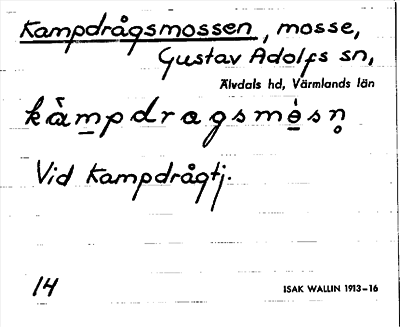 Kampdrågsmossen, mosse,
Gustav Adolfs sn,
Älvdals hd, Värmlands län
kàm̲pdragsmè̲sn̥
Vid Kampdrågtj.
14
ISAK WALLIN 1913–16